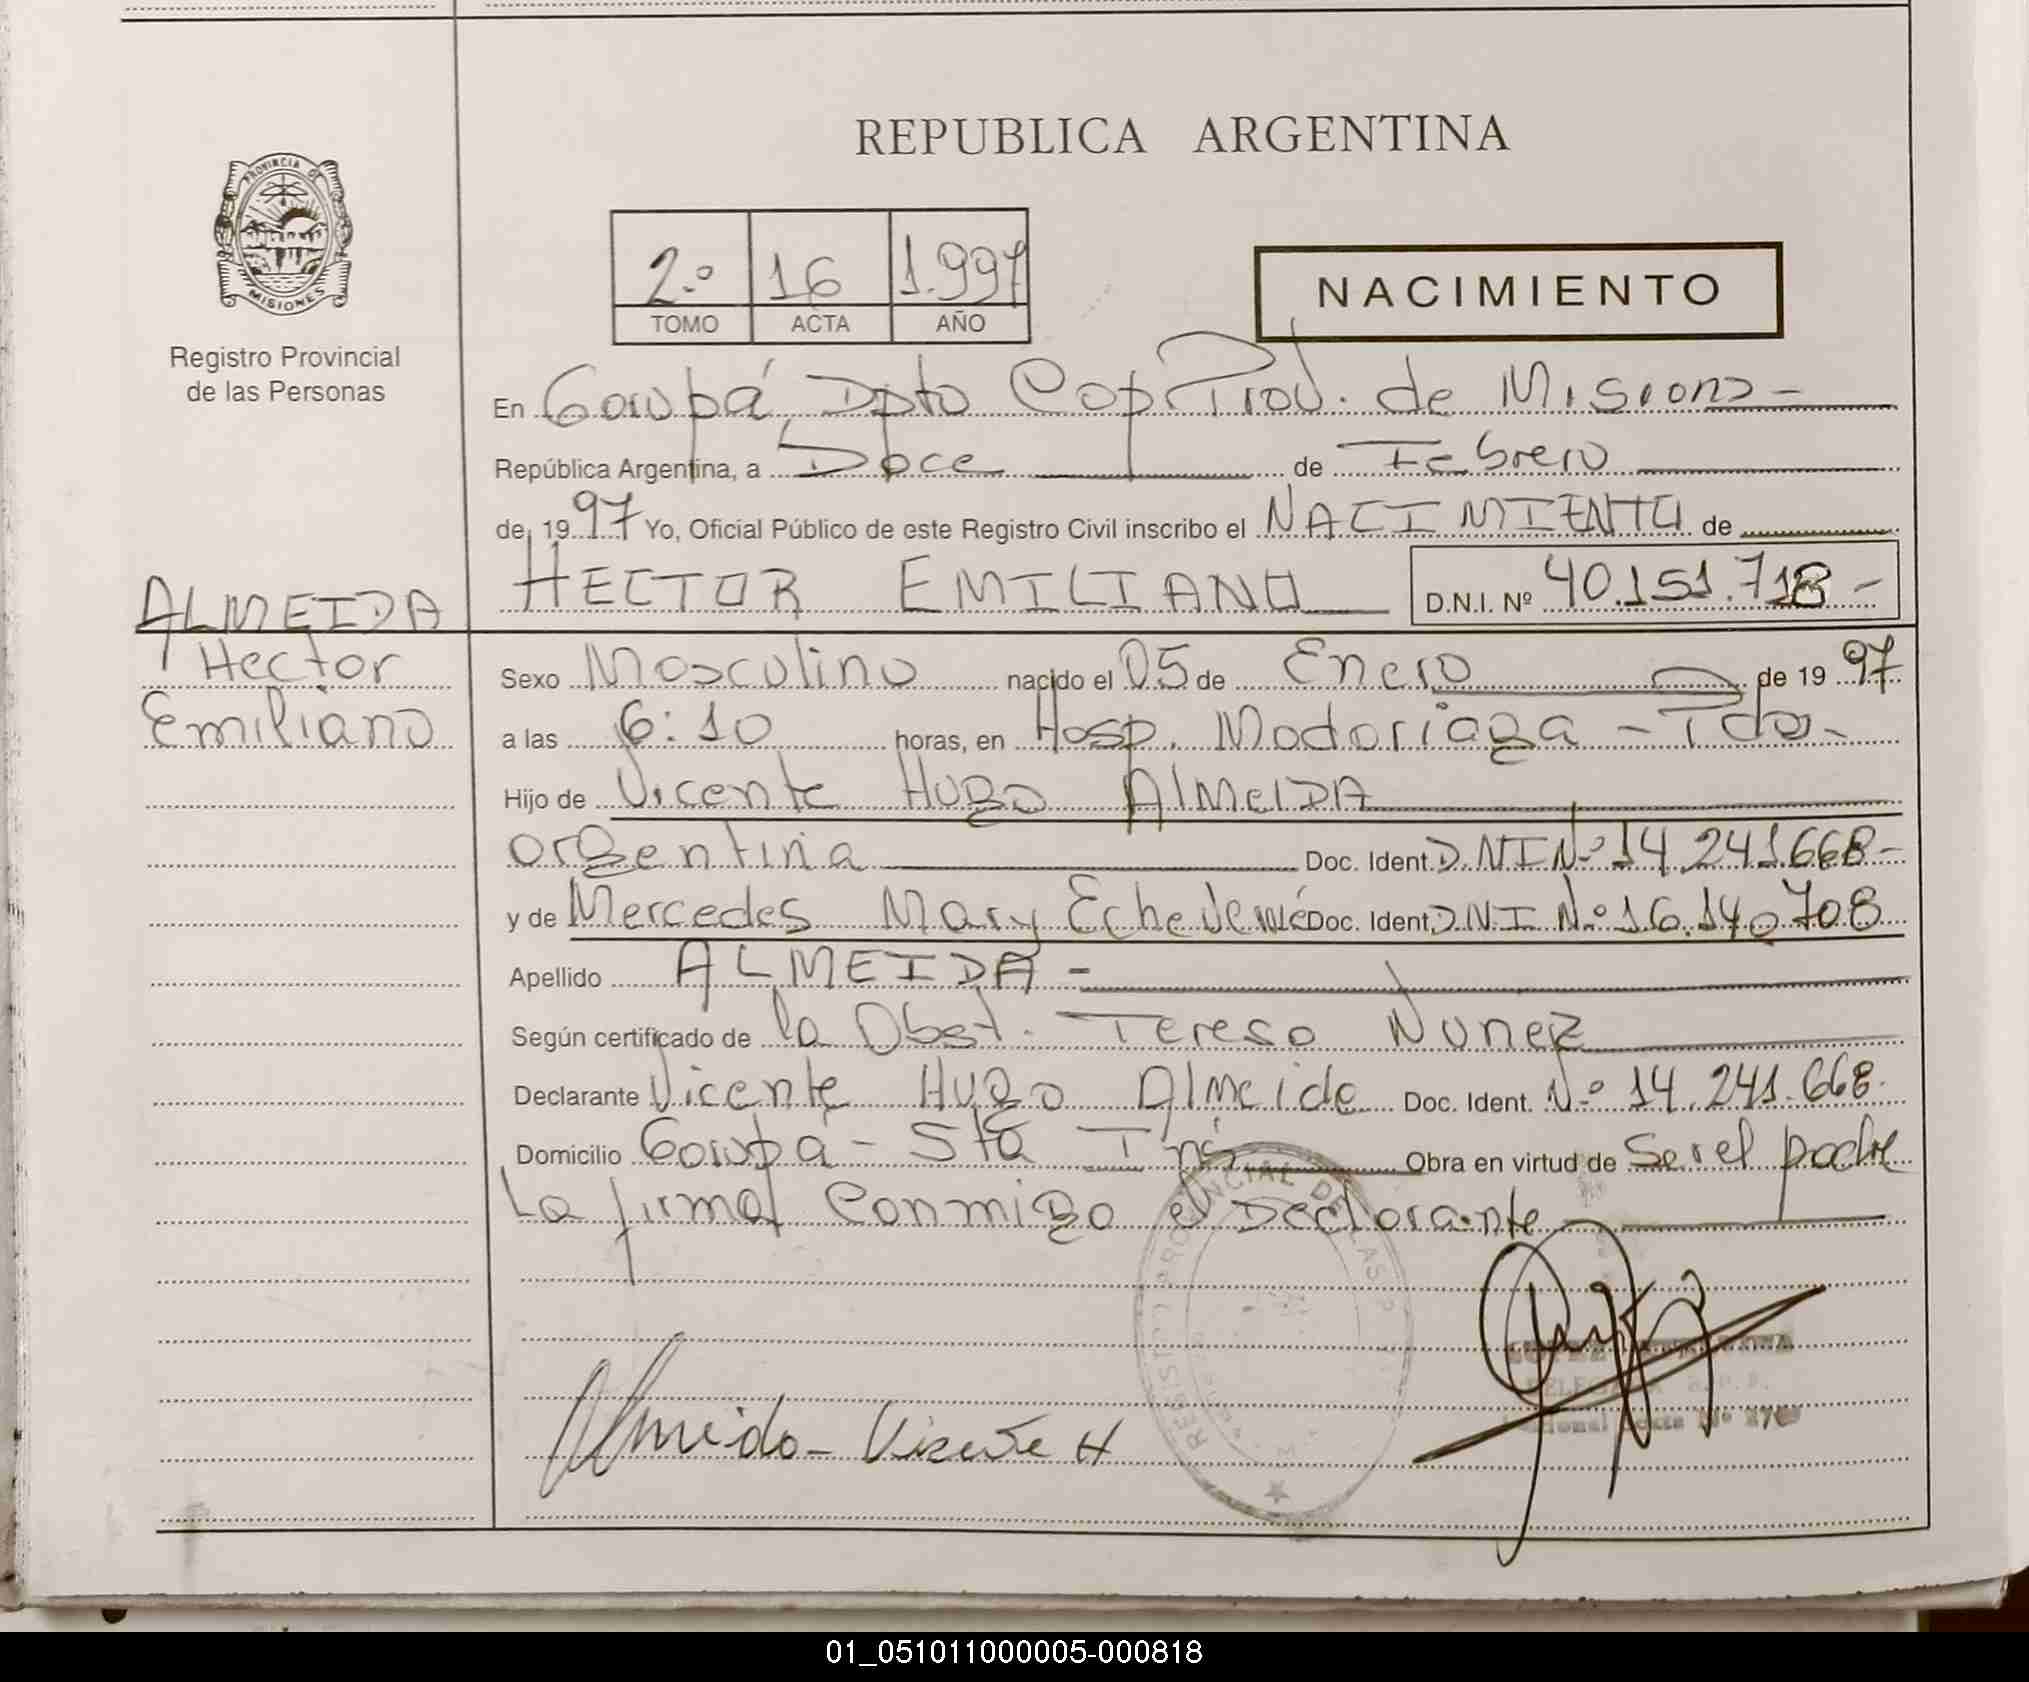 REPUBLICA ARGENTINA
PROVINCIA DE
MISIONES
Registro Provincial
de las Personas
2.º 16 1.997
TOMO ACTA AÑO
NACIMIENTO
En Garupá Dpto Cap Prov. de Misiones -
República Argentina, a Doce de Febrero
de 1997 Yo, Oficial Público de este Registro Civil inscribo el NACIMIENTO de
HECTOR EMILIANO D.N.I. Nº 40.151.718 -
ALMEIDA
Hector
Emiliano
Sexo Masculino nacido el 05 de Enero de 1997
a las 6:10 horas, en Hosp. Madariaga - Pdas -
Hijo de Vicente Hugo ALMEIDA
argentina Doc. Ident. D.N.I Nº 14.241.668 -
y de Mercedes Mary Doc. Ident. DNI Nº 16.140.708
Apellido ALMEIDA -
Según certificado de la Obst. Teresa Nuñez
Declarante Vicente Hugo Almeida Doc. Ident. Nº 14.241.668.
Domicilio Garupá - Sta Inés Obra en virtud de Ser el padre
La firma conmigo el Declarante
REGISTRO PROVINCIAL DE LAS
Almeida - Vicente H
01_051011000005-000818